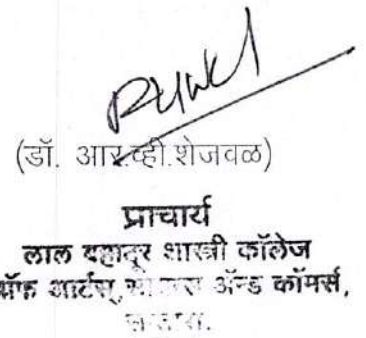 (डॉ. आर.व्ही.शेजवळ)
प्राचार्य
लाल बहादूर शास्त्री कॉलेज
ऑफ आर्टस्, सायन्स अ‍ॅन्ड कॉमर्स,
सातारा.